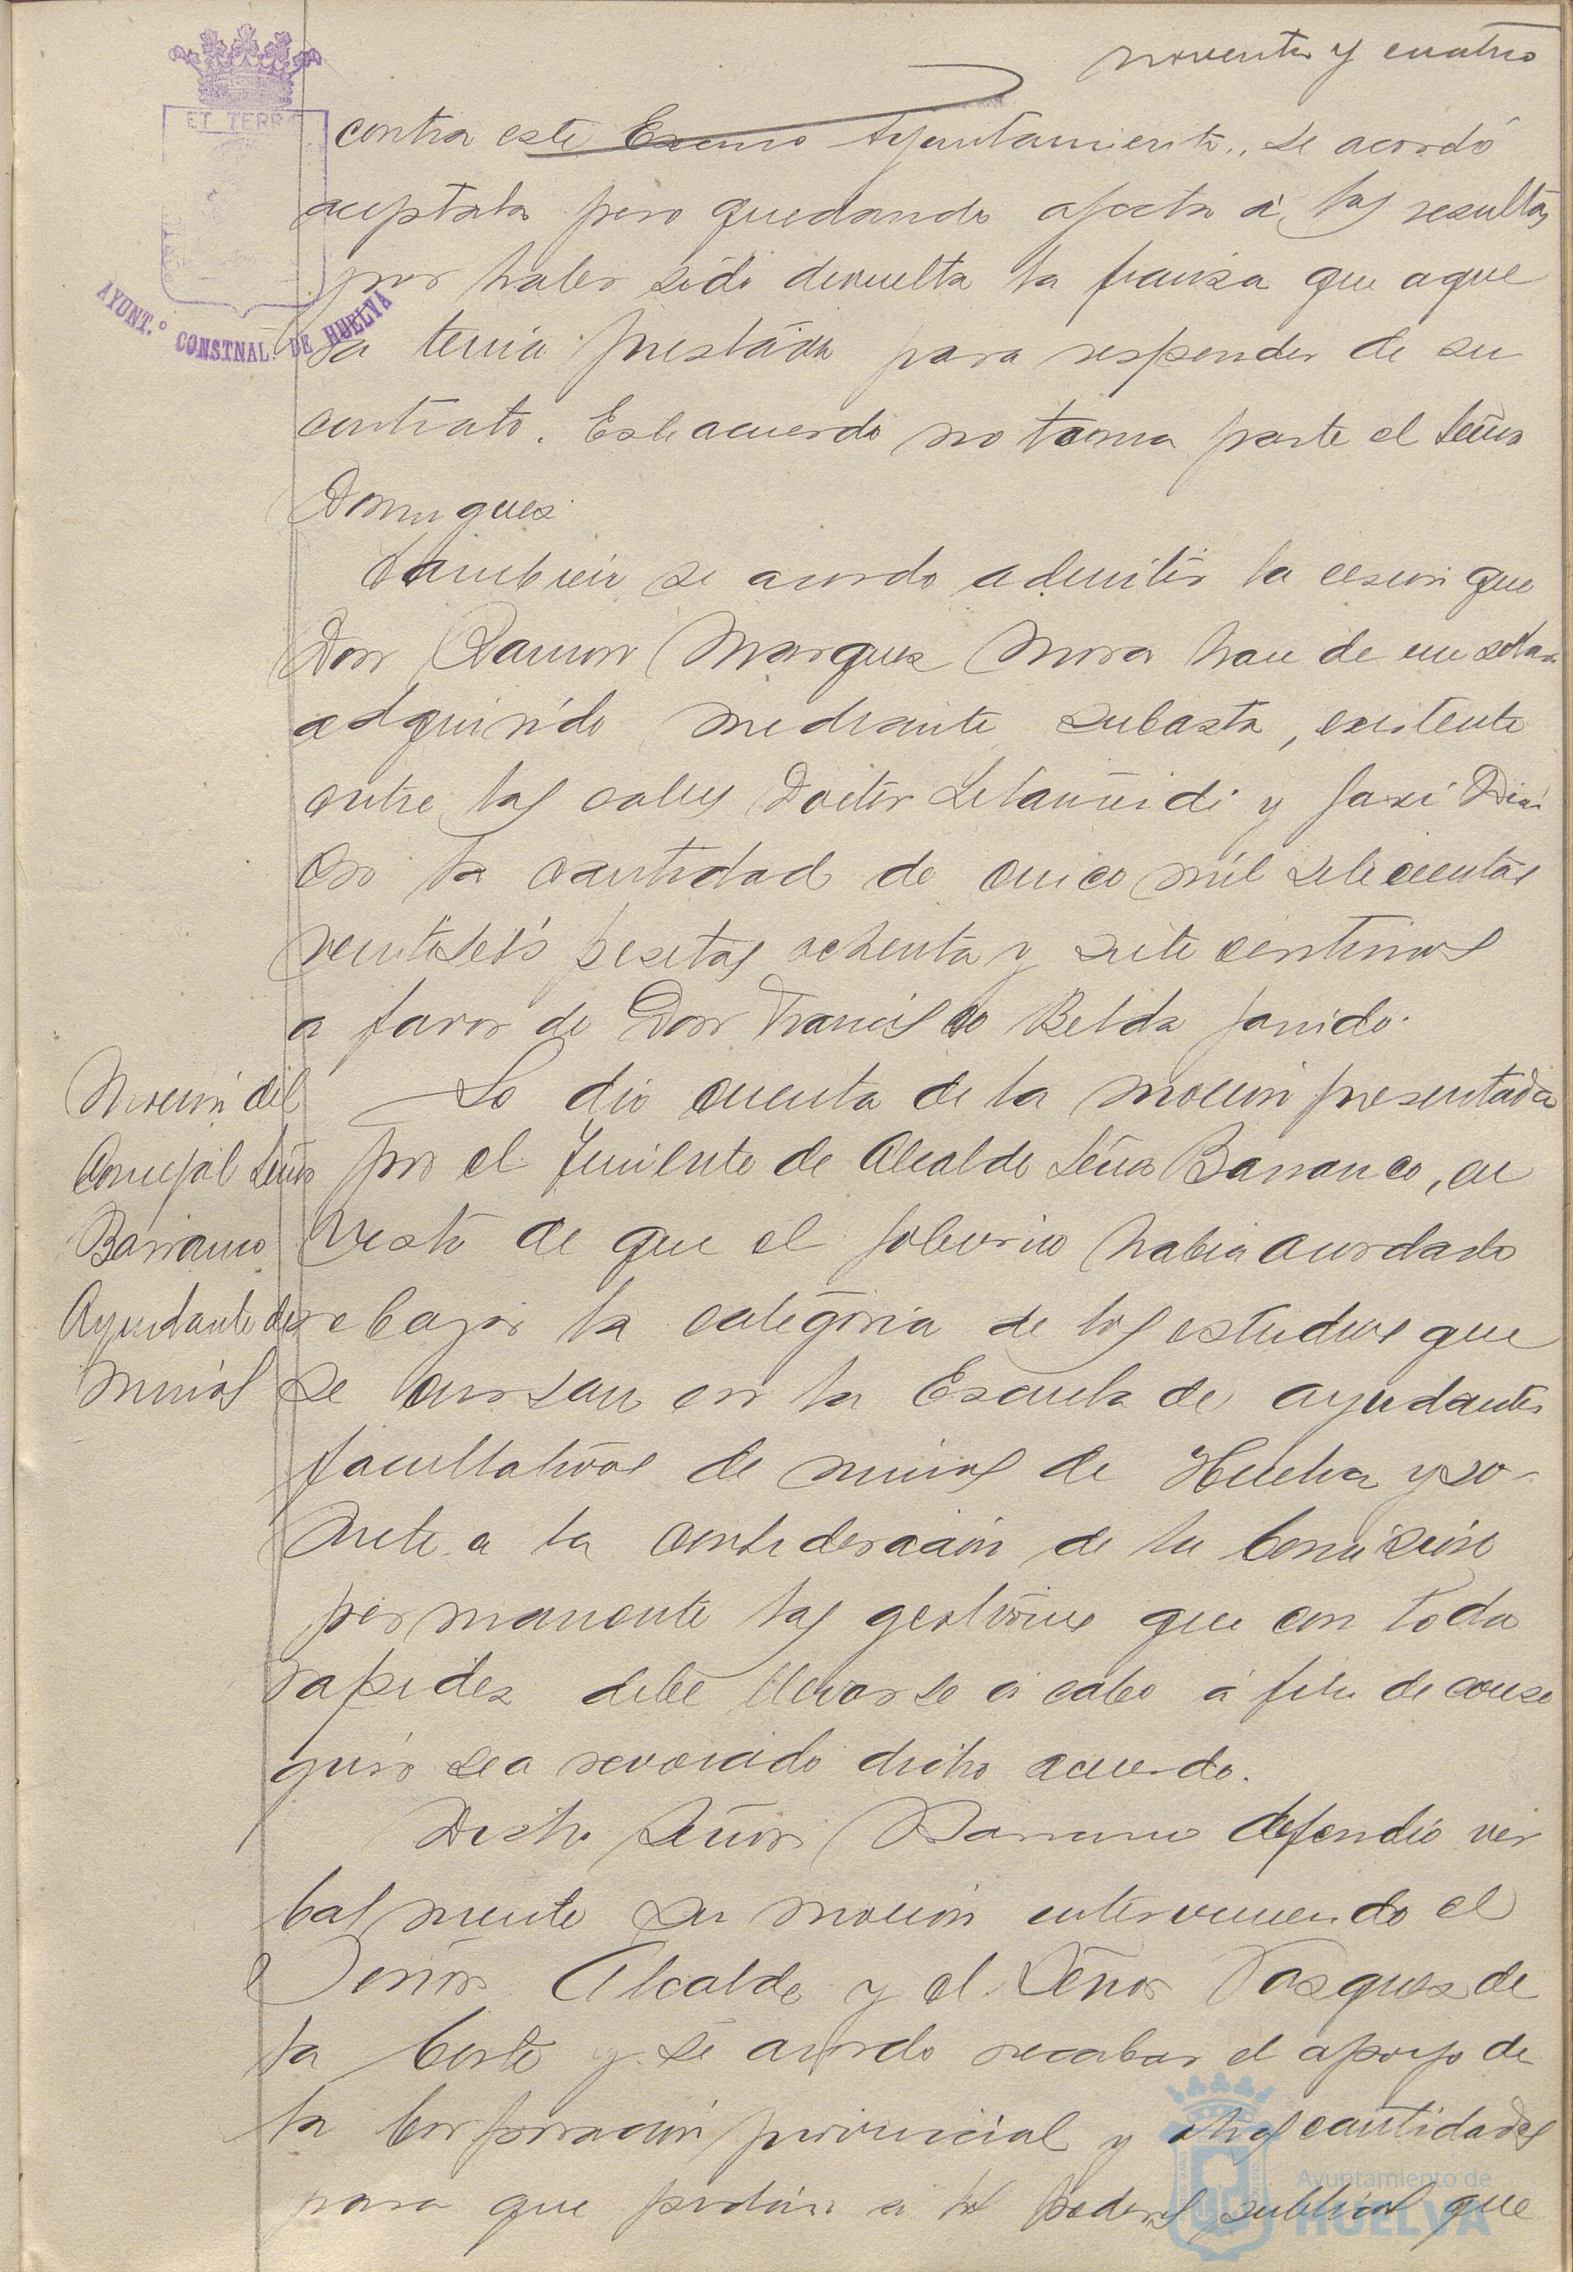 noventa y cuatro
ET TERR
AYUNT.º CONSTNAL. DE HUELVA
contra este Excmo Ayuntamiento, se acordó
aceptala pero quedando afecta á las resultas
por haber sido devuelta la fianza que aque
lla tenia prestada para responder de su
contrato. Este acuerdo no toma parte el Señor
Domingues
Tambien se acordo admitir la cesion que
Don Ramon Marquez Mora hace de un solar
adquirido mediante subasta, existente
entre las calles Doctor Letamendi y José
En la cantidad de cinco mil setecientas
veintiseis pesetas ochenta y siete centimos
a favor de Don Francisco Belda
Moción del
Concejal Señor
Barranco
Ayudante de
Minas
Se dio cuenta de la mocion presentada
por el Teniente de Alcalde Señor Barranco, en
vista de que el Gobierno habia acordado
rebajar la categoria de los estudios que
se cursan en la Escuela de ayudantes
facultativos de minas de Huelva y so-
mete a la consideración de la Comisión
permanente las gestiones que con toda
rapidez debe llevarse a cabo á fin de conse
guir sea revocado dicho acuerdo.
Dicho Señor Barranco defendió ver
balmente su moción interviniendo el
Señor Alcalde y el Señor Vasquez de
la Corte y se acordo recabar el apoyo de
la Corporación provincial y otras cantidades
para que pidan a los poderes publicos que
Ayuntamiento de
HUELVA